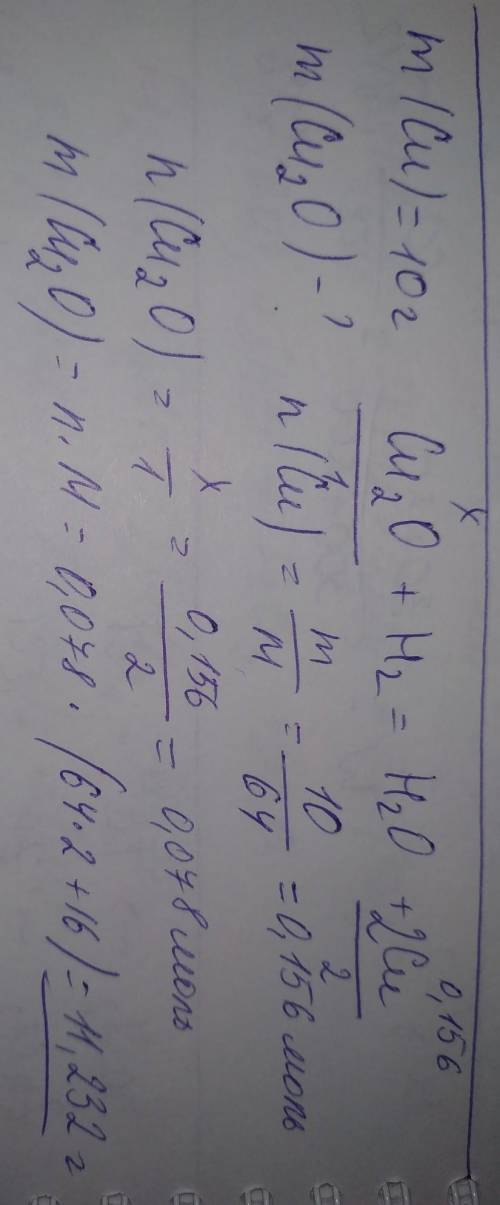 m(Cu) = 10г
x 0,156
Cu₂O + H₂ = H₂O + 2Cu
1 2
m(Cu₂O) - ?
n(Cu) = m/M = 10/64 = 0,156 моль
n(Cu₂O) = x/1 = 0,156/2 = 0,078 моль
m(Cu₂O) = n · M = 0,078 · (64·2+16) = 11,232 г